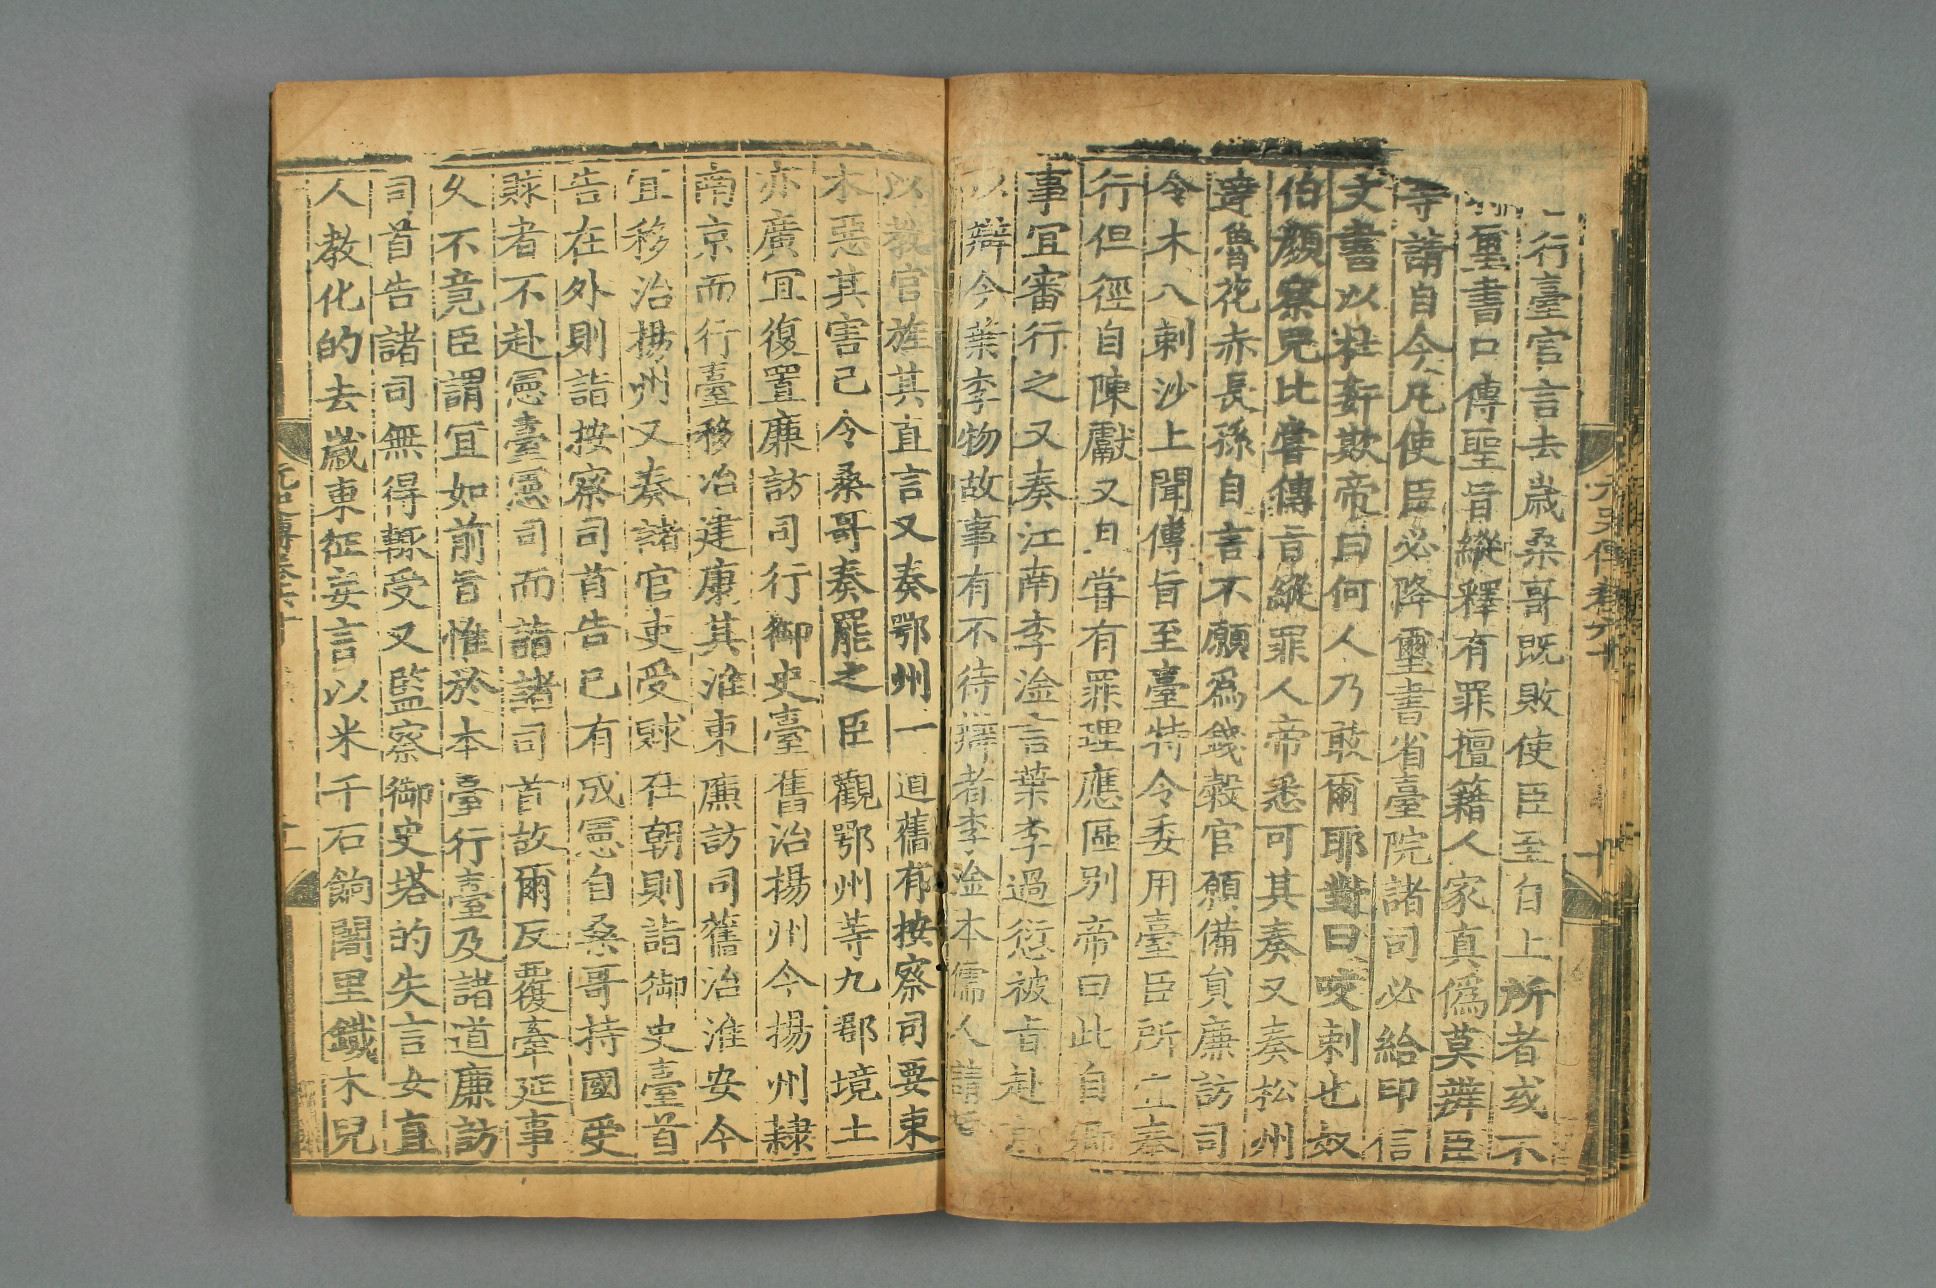 行臺官言去歲桑哥既敗使臣至自上所者或不
璽書口傳聖旨縱釋有罪擅籍人家真僞莫辨臣
等請自今凡使臣必降璽書省臺院諸司必給印信
文書以杜姧欺帝曰何人乃敢爾耶對曰咬剌也奴
伯顏察兒比嘗傳旨縱罪人帝悉可其奏又奏松州
達魯花赤長孫自言不願爲錢穀官願備員廉訪司
令木八剌沙上聞傳旨至臺特令委用臺臣所宜奏
行但徑自陳獻又且嘗有罪理應區別帝曰此自卿
事宜審行之又奏江南李淦言葉李過愆被旨赴京
以辯今葉李物故事有不待辯者李淦本儒人請
以教官旌其直言又奏鄂州一道舊有按察司要束
木惡其害己令桑哥奏罷之臣觀鄂州等九郡境土
亦廣宜復置廉訪司行御史臺舊治揚州今揚州隸
南京而行臺移治建康其淮東廉訪司舊治淮安今
宜移治揚州又奏諸官吏受賕在朝則詣御史臺首
告在外則詣按察司首告已有成憲自桑哥持國受
賕者不赴憲臺憲司而詣諸司首故爾反覆牽延事
久不竟臣謂宜如前旨惟於本臺行臺及諸道廉訪
司首告諸司無得輒受又監察御史塔的失言女直
人教化的去歲東征妄言以米千石餉闍里鐵木兒